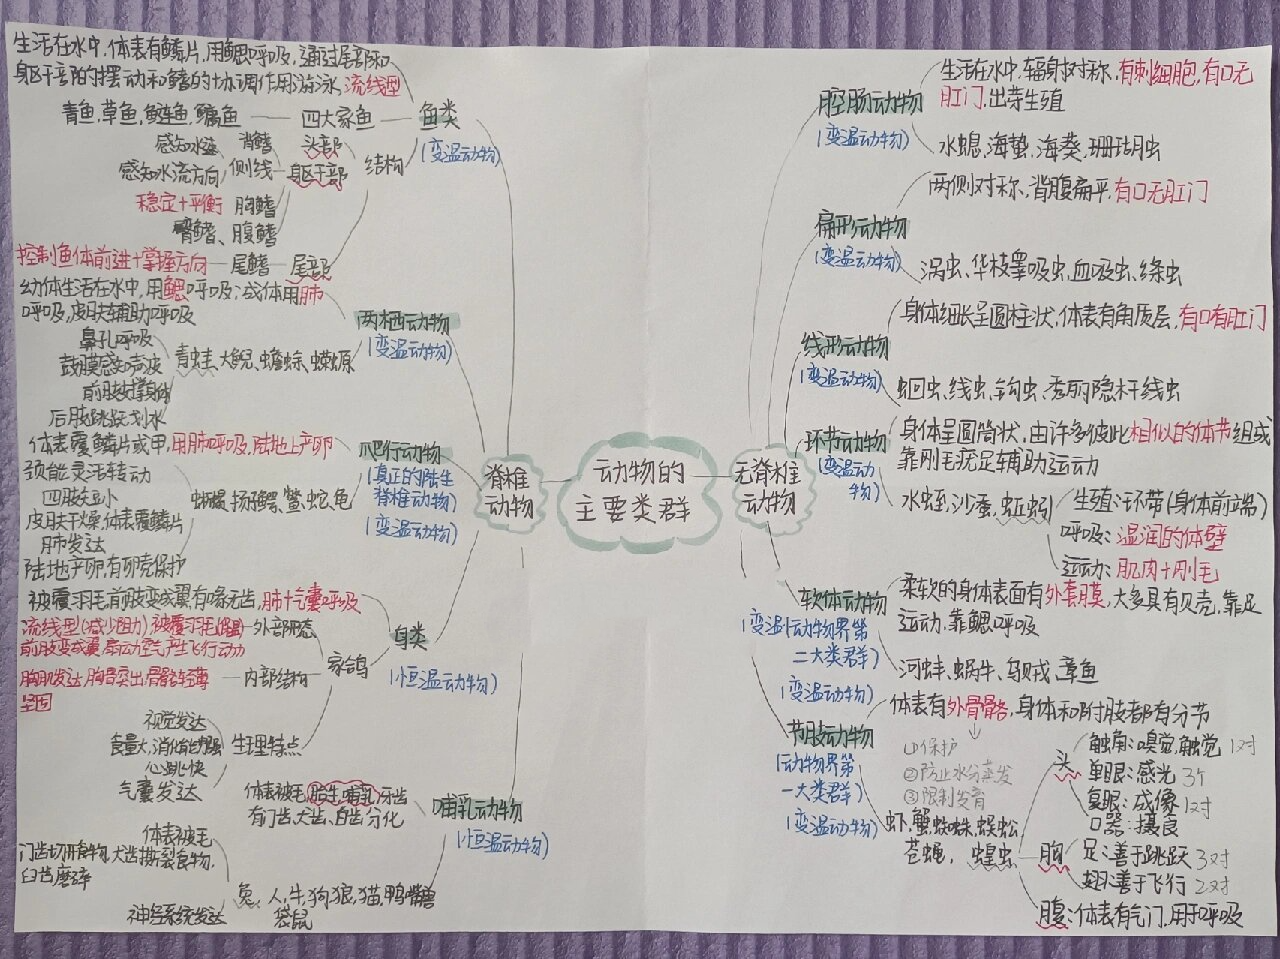 动物的
主要类群
脊椎
动物
无脊椎
动物
生活在水中,体表有鳞片,用鳃呼吸,通过尾部和
躯干部的摆动和鳍的协调作用游泳,流线型
青鱼,草鱼,鲢鱼,鳙鱼 — 四大家鱼 — 鱼类
(变温动物)
结构
头部
躯干部
背鳍
感知水流方向 侧线
稳定+平衡 胸鳍
臀鳍、腹鳍
控制鱼体前进+掌握方向 — 尾鳍 — 尾部
幼体生活在水中,用鳃呼吸;成体用肺
呼吸,皮肤辅助呼吸
两栖动物
(变温动物)
鼻孔呼吸
鼓膜感知声波
前肢支撑身体
后肢跳跃划水
青蛙、大鲵、蟾蜍、蝾螈
体表覆鳞片或甲,用肺呼吸,陆地上产卵
爬行动物
(真正的陆生
脊椎动物)
(变温动物)
颈能灵活转动
四肢短小
皮肤干燥,体表覆鳞片
肺发达
陆地产卵,有卵壳保护
蜥蜴、扬子鳄、鳖、蛇、龟
被覆羽毛,前肢变成翼,有喙无齿,肺+气囊呼吸
鸟类
(恒温动物)
家鸽
流线型(减少阻力),被覆羽毛 — 外部形态
前肢变成翼,扇动空气,产生飞行动力
胸肌发达,胸骨突出,骨骼轻薄 — 内部结构
坚固
视觉发达
食量大,消化能力强
心跳快
气囊发达
生理特点
体表被毛,胎生,哺乳,牙齿
有门齿、犬齿、臼齿分化
哺乳动物
(恒温动物)
体表被毛
门齿切断食物,犬齿撕裂食物,
臼齿磨碎
神经系统发达
兔、人,牛,狗,狼,猫,鸭嘴兽
袋鼠
腔肠动物
(变温动物)
生活在水中,辐射对称,有刺细胞,有口无
肛门,出芽生殖
水螅,海蜇,海葵,珊瑚虫
扁形动物
(变温动物)
两侧对称、背腹扁平,有口无肛门
涡虫、华枝睾吸虫,血吸虫、绦虫
线形动物
(变温动物)
身体细长呈圆柱状,体表有角质层,有口有肛门
蛔虫,线虫,钩虫,秀丽隐杆线虫
环节动物
(变温动
物)
身体呈圆筒状,由许多彼此相似的体节组成
靠刚毛疣足辅助运动
水蛭,沙蚕,蚯蚓
生殖:环带(身体前端)
呼吸:湿润的体壁
运动:肌肉+刚毛
软体动物
(动物界第
二大类群)
(变温动物)
柔软的身体表面有外套膜,大多具有贝壳,靠足
运动,靠鳃呼吸
河蚌、蜗牛、乌贼、章鱼
节肢动物
(动物界第
一大类群)
(变温动物)
体表有外骨骼,身体和附肢都有分节
①保护
②防止水分蒸发
③限制发育
虾,蟹,蜘蛛,蜈蚣
苍蝇,蝗虫
头
触角:嗅觉,触觉 1对
单眼:感光 3个
复眼:成像 1对
口器:摄食
胸
足:善于跳跃 3对
翅:善于飞行 2对
腹:体表有气门,用于呼吸